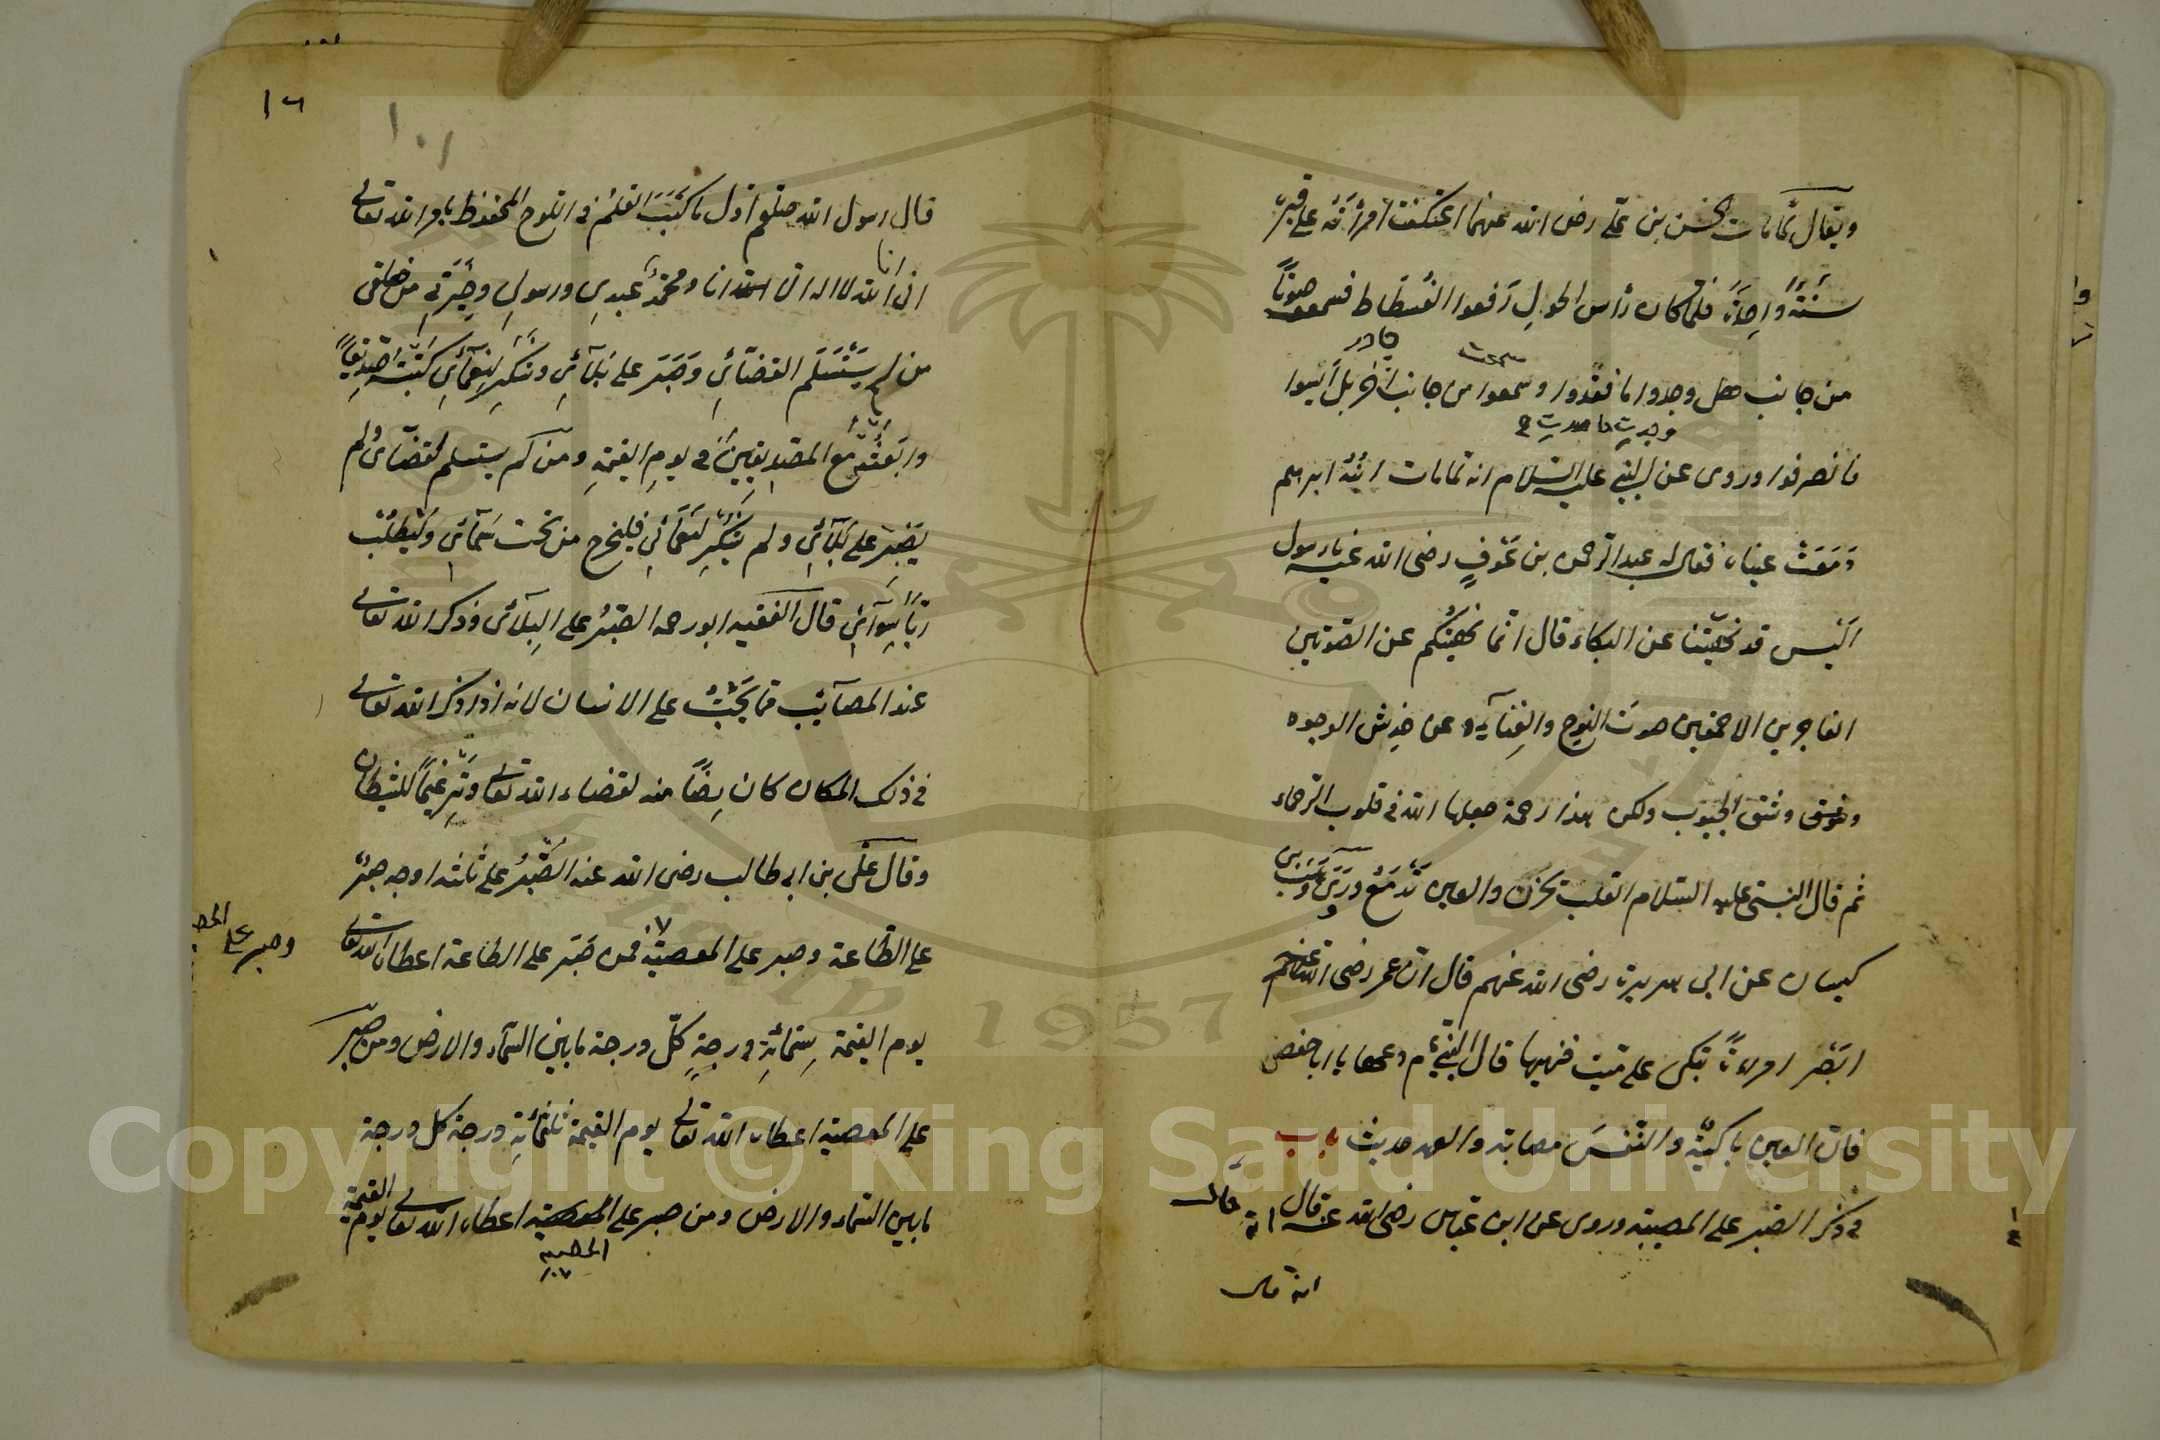 ويقال لما مات الحسن بن علي رضى الله عنهما اعتكفت امرأته على قبره
سنةً واحِدةً فلما كان رأس الحولِ رَفعوا الفُسطاط فسمعوا صوتًا
من جانب هل وجدوا ما فقدوا وسمعوا من جانب اٰخر بل أيسوا
فانصرفوا وروى عن النبي عليه السلام انه لما مات ابنُهُ ابرهيم
دَمَعَتْ عيناه فقال له عبد الرحمن بن عَوفٍ رضى الله عنه يا رسول
اَلَيْسَ قد نهيتنا عن البكاء قال انما نهيتُكم عن الصَّوتين
الفاجرين الاحمقين صوت النوح والغِنآء وعن خدش الوجوه
وشق الجيوب ولكن هذا رحمة جعلها الله فى قلوب الرحماء
ثم قال النبى عليه السلام القلب يحزن والعين تَدمَعُ ورَوَى وَهَبُ بن
كيسان عن ابى هريرة رضى الله عنهم قال انّ عمر رضى الله عنه
ابَصَر امراءةً تبكى على ميت فنهيها قال النبي م دعها يا ابا حفص
فان العين باكيةٌ والنَّفسَ مصابة والعهد حديث باب
فى ذكر الصبر على المصيبة وروى عن ابن عباس رضى الله عنه قال انه قال
انه قال
١٦
١٠١
قال رسول الله صلعم اوّل ما كَتَبَ القلمُ فى اللوح المحفوظ بامر الله تعالى
انى انا الله لا اله الا انا ومحمّدٌ عَبدِى ورسولِى وخِيَرَتِى من خلقى
من يَسْتَسْلَم القضآئِى وَصَبَرَ على بَلآئِى وشَكَرَ لِنَعمآئِى كَتَبْتُهُ صِدِّيقًا
وابَعَثُهُ مع الصِّدِيقِينَ فى يومِ القيمةِ ومَن لم يستسلم لقضآئى ولم
يَصْبِرَ على بَلآئِى ولم يَشْكُر لنَعمآئِى فليخرج من تحت سَمآئِى وَلْيَطلُبْ
ربًّا سِوآئِى قال الفقيه ابو رحمه الصَّبْرُ على البِلآئى وذكر الله تعالى
عند المصآئب مما يَجِبُ على الانسان لانه اذا ذكر الله تعالى
فى ذلك المكان كان رِضًا منه لقضاء الله تعالى وتَرغيمًا للشيطان
وقال علَى بن ابى طالب رضى الله عنه الصَّبْرُ على ثلثة اوجه صبرٌ
على الطَّاعة وصبر على المعصية فمن صَبَر على الطاعة اعطاه الله تعالى
وصبر على المصيبة
يوم القيمة سِتمائةِ درجةٍ كلّ درجة ما بين السّمآء والارض ومن صبر
على المعصية اعطاه الله تعالى يوم القيمة ثلثمائةِ درجة كل درجة
ما بين السّماء والارض ومن صبر على المعصية اعطاه الله تعالى يوم القيمة
المصيبة
Copyright © King Saud University
1957